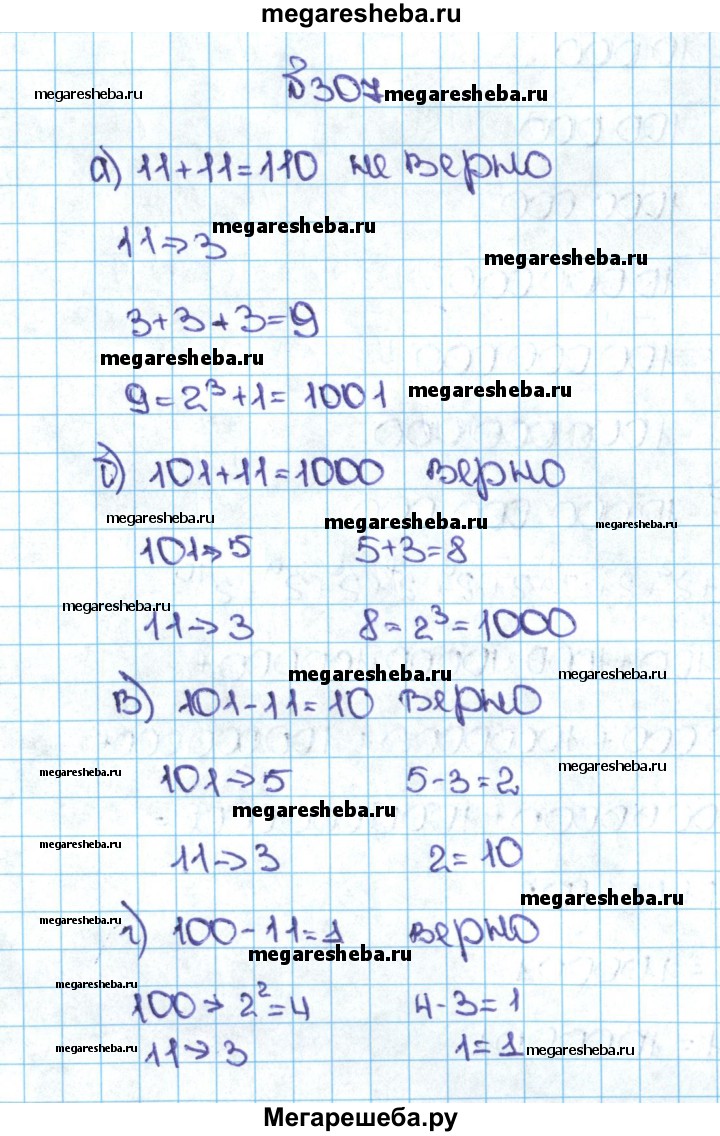 megaresheba.ru
№307
megaresheba.ru megaresheba.ru
а) 11+11=110 не верно
megaresheba.ru
11→3
megaresheba.ru
3+3+3=9
megaresheba.ru
megaresheba.ru
9=2³+1=1001
б) 101+11=1000 верно
megaresheba.ru megaresheba.ru megaresheba.ru
101→5 5+3=8
megaresheba.ru
11→3 8=2³=1000
megaresheba.ru megaresheba.ru
в) 101-11=10 верно
megaresheba.ru megaresheba.ru
101→5 5-3=2
megaresheba.ru
megaresheba.ru
11→3 2=10
megaresheba.ru
megaresheba.ru
г) 100-11=1 верно
megaresheba.ru
megaresheba.ru
100→2²=4 4-3=1
megaresheba.ru megaresheba.ru
11→3 1=1
Мегарешеба.ру